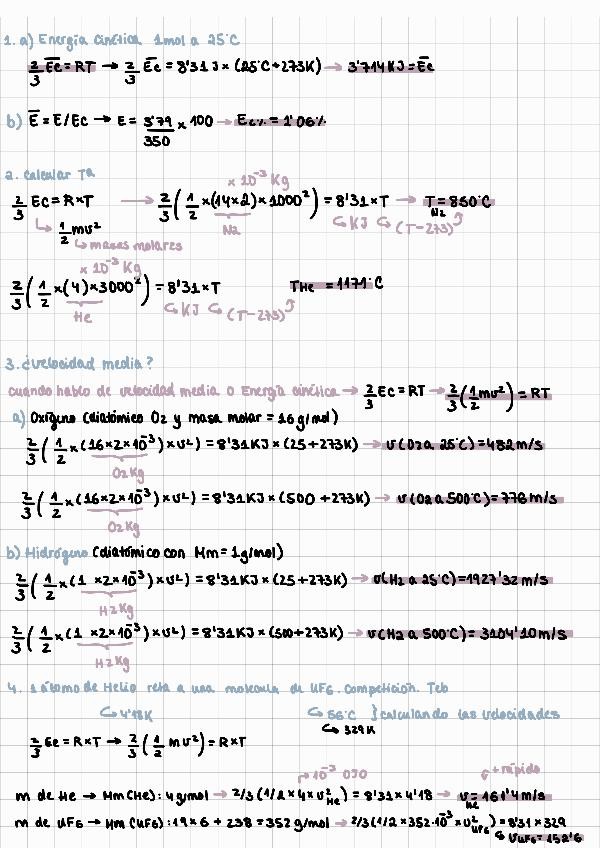 1. a) Energía cinética 1mol a 25°C
2/3 Ec = RT → 2/3 Ec = 8'31J × (25°C+273K) → 3'714KJ = Ec
b) E = E/Ec → E = 3'79/350 × 100 → Ec% = 1'06%
2. Calcular Tª
× 10⁻³ Kg
2/3 Ec = R×T → 2/3 ( 1/2 × (14×2) × 1000² ) = 8'31 × T → T = 850°C
N2
↳ 1/2 mv² N2 ↳ KJ ↳ (T-273)
↳ masas molares
× 10⁻³ Kg
2/3 ( 1/2 × (4) × 3000² ) = 8'31 × T THe = 1171°C
He ↳ KJ ↳ (T-273)
3. ¿Velocidad media?
cuando hablo de velocidad media o Energía cinética → 2/3 Ec = RT → 2/3 ( 1/2 mv² ) = RT
a) Oxígeno (diatómico O2 y masa molar = 16g/mol)
2/3 ( 1/2 × (16×2×10⁻³) × v² ) = 8'31KJ × (25+273K) → v(O2 a 25°C) = 482m/s
O2 Kg
2/3 ( 1/2 × (16×2×10⁻³) × v² ) = 8'31KJ × (500 +273K) → v(O2 a 500°C) = 776m/s
O2 Kg
b) Hidrógeno (diatómico con Mm = 1g/mol)
2/3 ( 1/2 × (1 ×2×10⁻³) × v² ) = 8'31KJ × (25+273K) → v(H2 a 25°C) = 1927'32 m/s
H2 Kg
2/3 ( 1/2 × (1 ×2×10⁻³) × v² ) = 8'31KJ × (500+273K) → v(H2 a 500°C) = 3104'10m/s
H2 Kg
4. 1 átomo de Helio reta a una molecula de UF6. Competición. Teb
↳ 4'18K ↳ 56°C } calculando las velocidades
↳ 329K
2/3 Ec = R×T → 2/3 ( 1/2 mv² ) = R×T
↱ 10⁻³ OJO + rápido
m de He → Mm(He): 4g/mol → 2/3 (1/2 × 4 × v²He) = 8'31 × 4'18 → vHe = 161'4 m/s
m de UF6 → Mm (UF6): 19×6 + 238 = 352 g/mol → 2/3 (1/2 × 352·10⁻³ × v²UF6) = 8'31 × 329
↳ vUF6 = 152'6